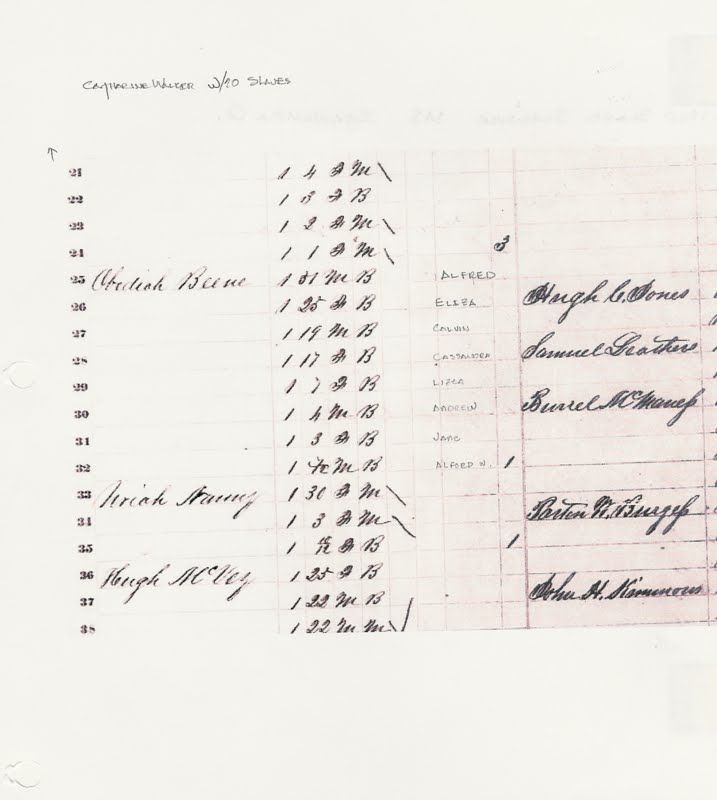 Catharine Walker w/20 Slaves
21 1 4 F M \
22 1 3 F B
23 1 2 F M \
24 1 1 F M \ 3
25 Obediah Beene 1 51 M B ALFRED
26 1 25 F B ELIZA Hugh C. Jones
27 1 19 M B CALVIN
28 1 17 F B CASSANDRA Samuel Leathers
29 1 7 F B LIZZA
30 1 4 M B ANDREW Burrel McManes
31 1 3 F B JANE
32 1 M B ALFORD W. 1
33 Uriah Nanny 1 30 F M \
34 1 3 F M \ Burgess
35 1 F B 1
36 Hugh McVey 1 25 F B
37 1 22 M B John H. Kimmons
38 1 22 M M \